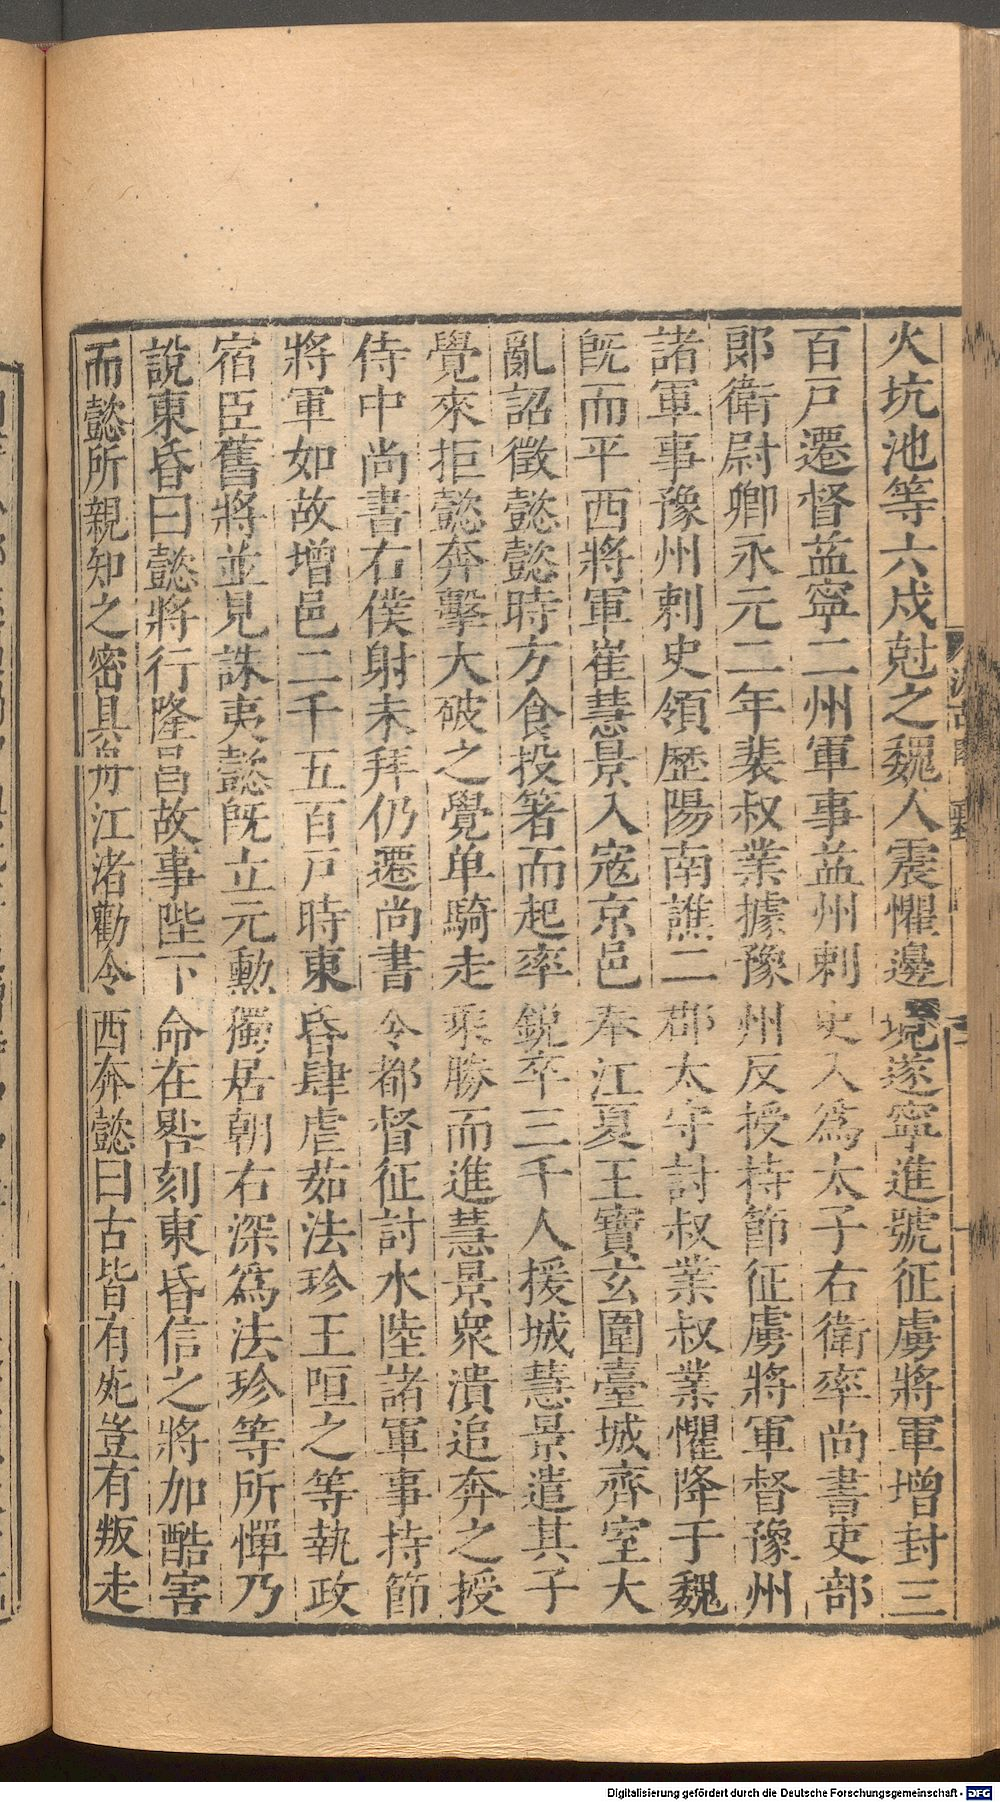 火坑池等六戍尅之魏人震懼邊境遂寧進號征虜將軍增封三
百戸遷督益寧二州軍事益州刺史入爲太子右衛率尚書吏部
郞衛尉卿永元二年裴叔業據豫州反授持節征虜將軍督豫州
諸軍事豫州刺史領歷陽南譙二郡太守討叔業叔業懼降于魏
旣而平西將軍崔慧景入寇京邑奉江夏王寶玄圍臺城齊室大
亂詔徵懿懿時方食投箸而起率銳卒三千人援城慧景遣其子
覺來拒懿奔擊大破之覺单騎走乘勝而進慧景衆潰追奔之授
侍中尚書右僕射未拜仍遷尚書令都督征討水陸諸軍事持節
將軍如故增邑二千五百戸時東昏肆虐茹法珍王咺之等執政
宿臣舊將並見誅夷懿旣立元勳獨居朝右深爲法珍等所憚乃
說東昏曰懿將行隆昌故事陛下命在晷刻東昏信之將加酷害
而懿所親知之密具舟江渚勸令西奔懿曰古皆有死豈有叛走
Digitalisierung gefördert durch die Deutsche Forschungsgemeinschaft - DFG